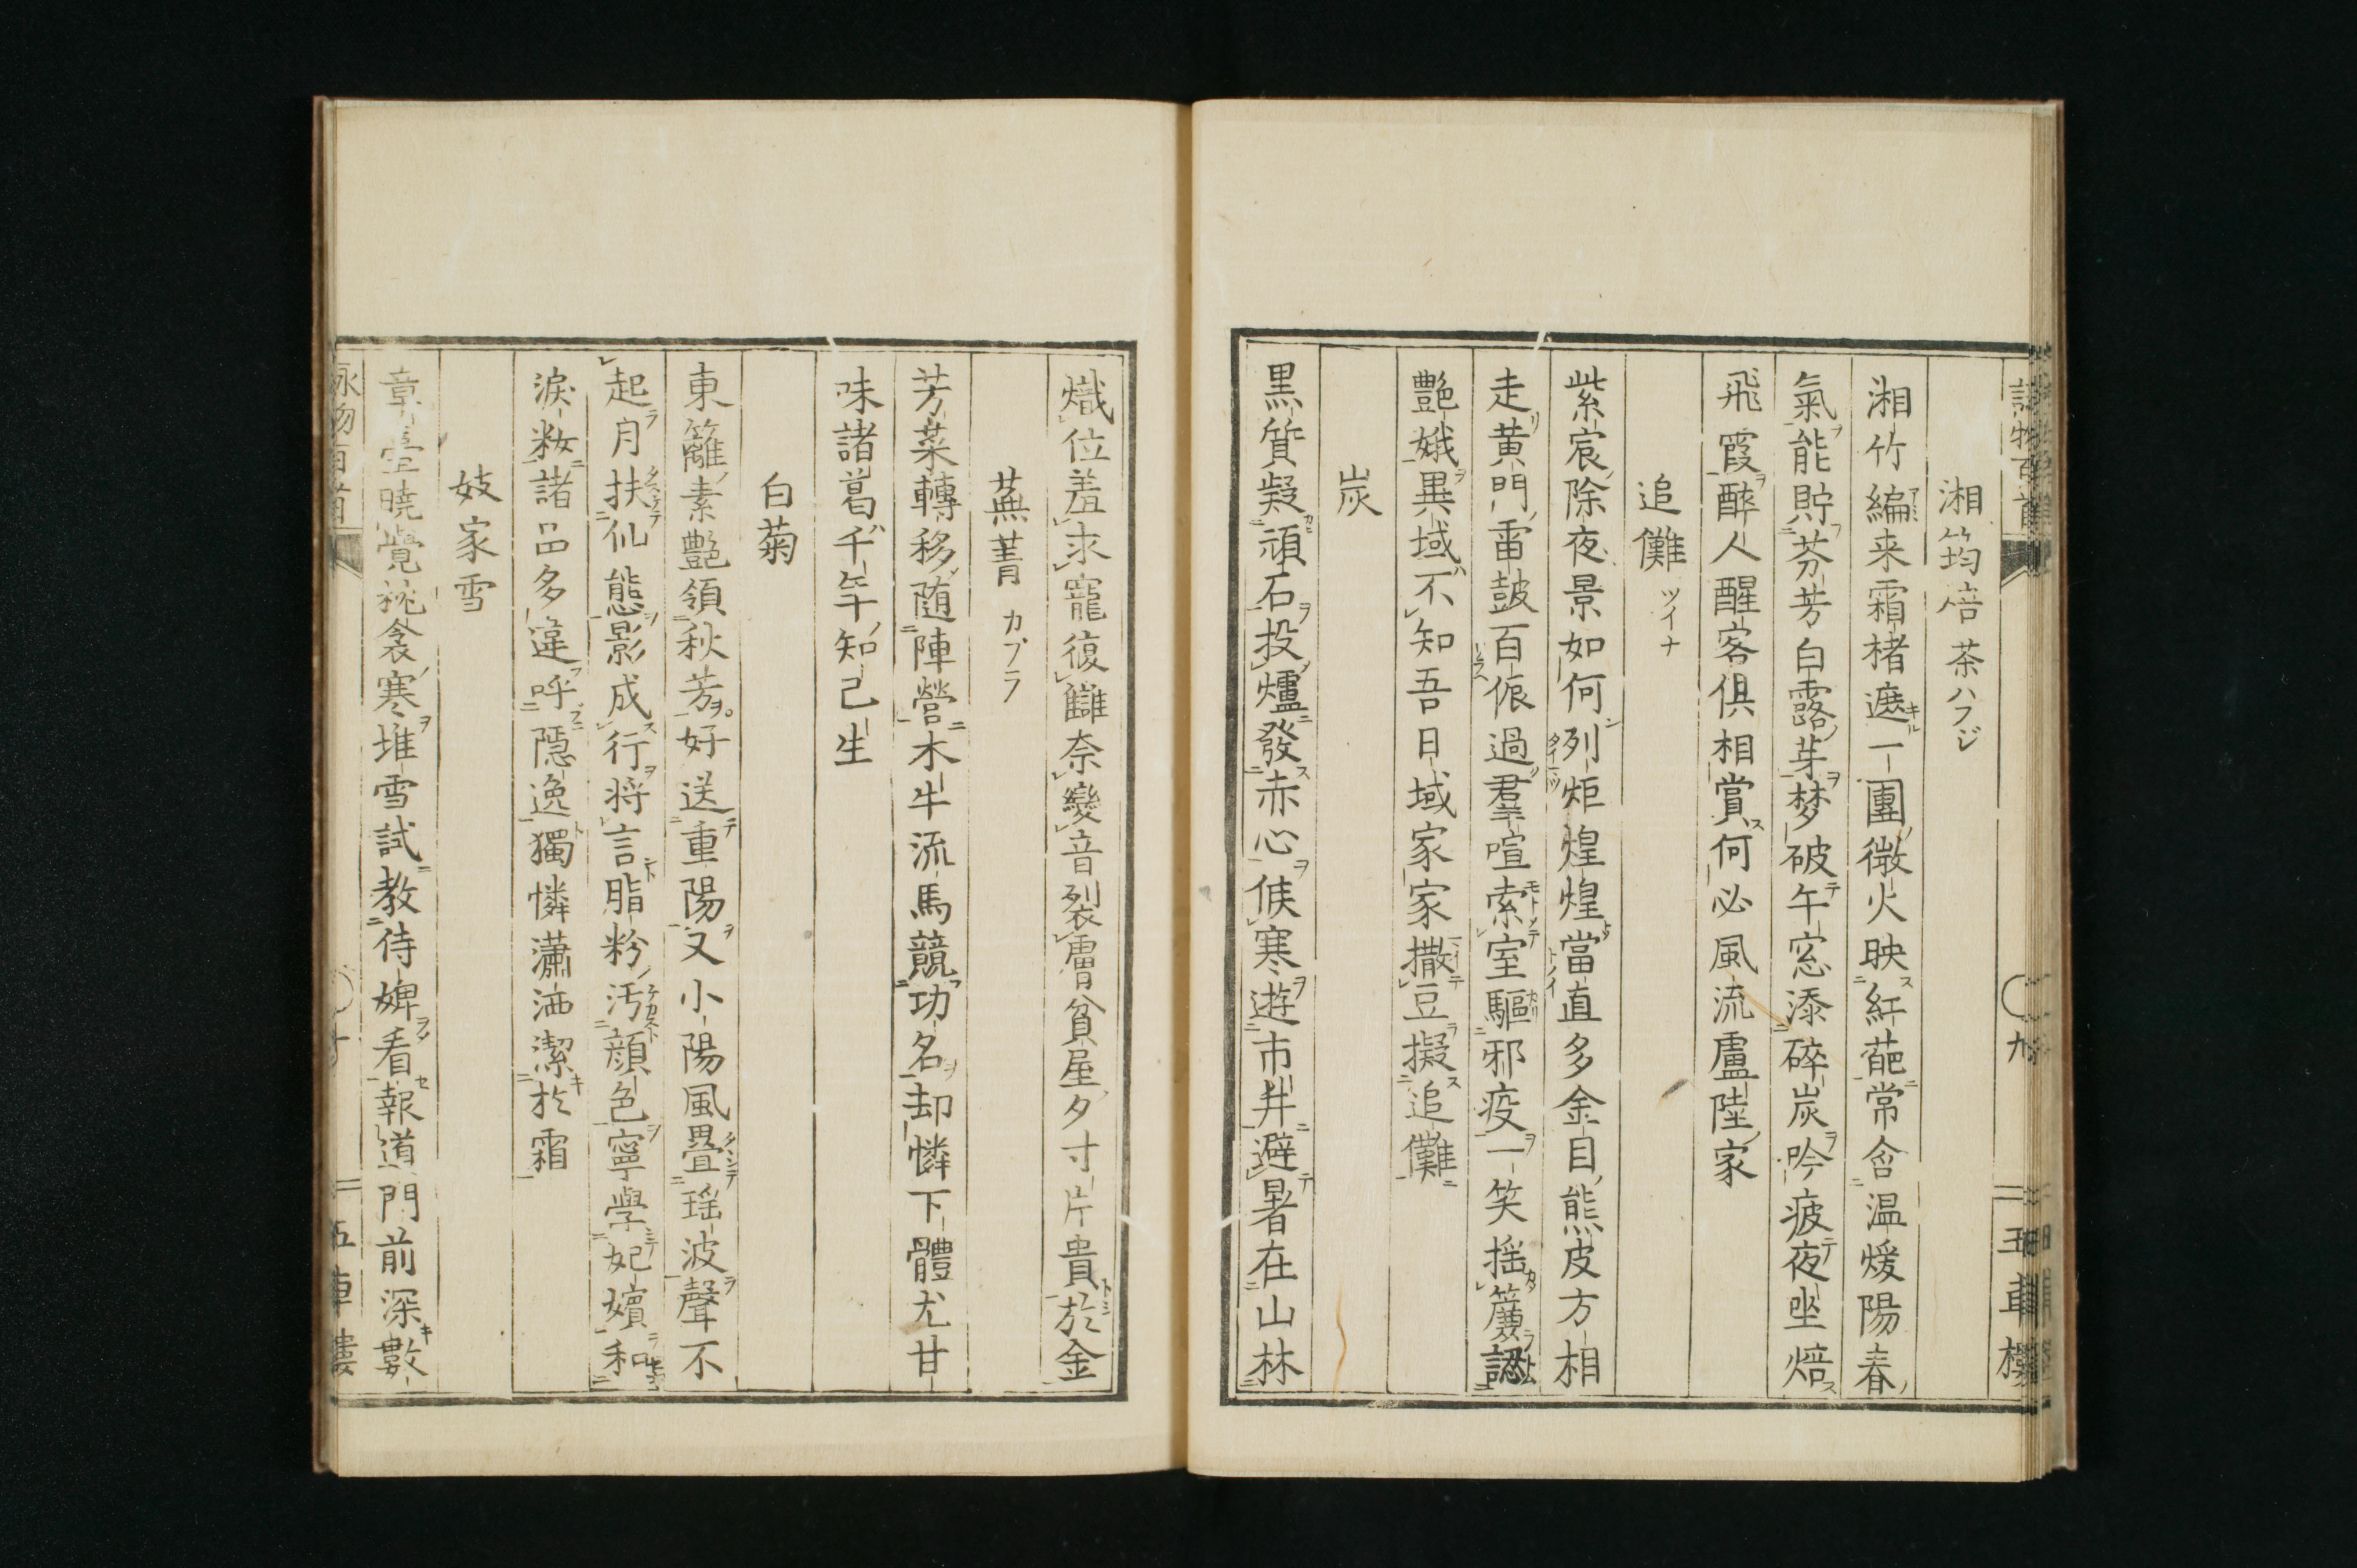 湘筠焙 茶ハフジ
湘竹編来霜楮遮一團微火映紅葩常含温煖陽春
氣能貯芬芳白露芽梦破午窓添碎炭吟疲夜坐焙
飛霞醉人醒客俱相賞何必風流盧陸家
追儺 ツイナ
紫宸除夜景如何列炬煌煌當直多金目熊皮方相
走黄門雷鼓百倀過羣喧索室驅邪疫一笑揺簾認
艶娥異域不知吾日域家家撒豆擬追儺
炭
黒質凝頑石投爐發赤心候寒遊市井避暑在山林
熾位羞求寵復讎奈變音裂膚貧屋夕寸片貴於金
蕪菁 カブラ
芳菜轉移随陣營木牛流馬競功名却憐下體尤甘
味諸葛千年知己生
白菊
東籬素艶領秋芳好送重陽又小陽風疊瑶波聲不
起月扶仙態影成行将言脂粉汚顔色寧學妃嬪和
淚粧諸品多違呼隠逸獨憐瀟洒潔於霜
妓家雪
章臺曉覺枕衾寒堆雪試教侍婢看報道門前深數
詠物百首
九
五車樓